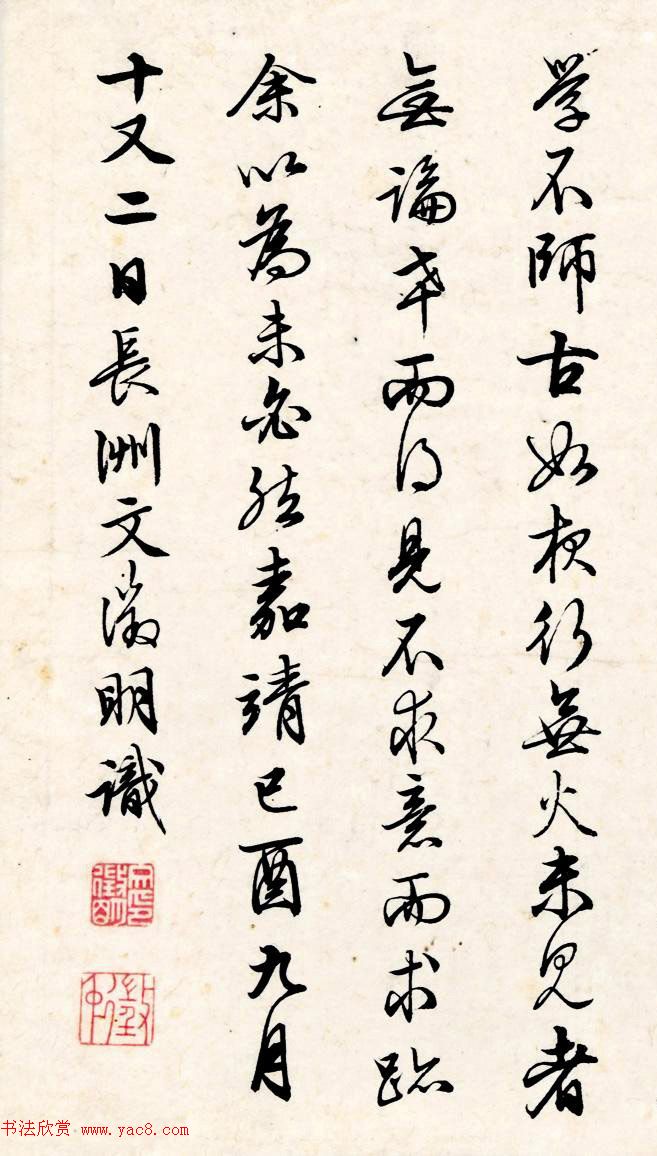 学不師古如夜行無火未見者
無論幸而得見不求意而求跡
余以為未必然嘉靖己酉九月
十又二日長洲文徵明識
徵明
书法欣赏 www.yac8.com